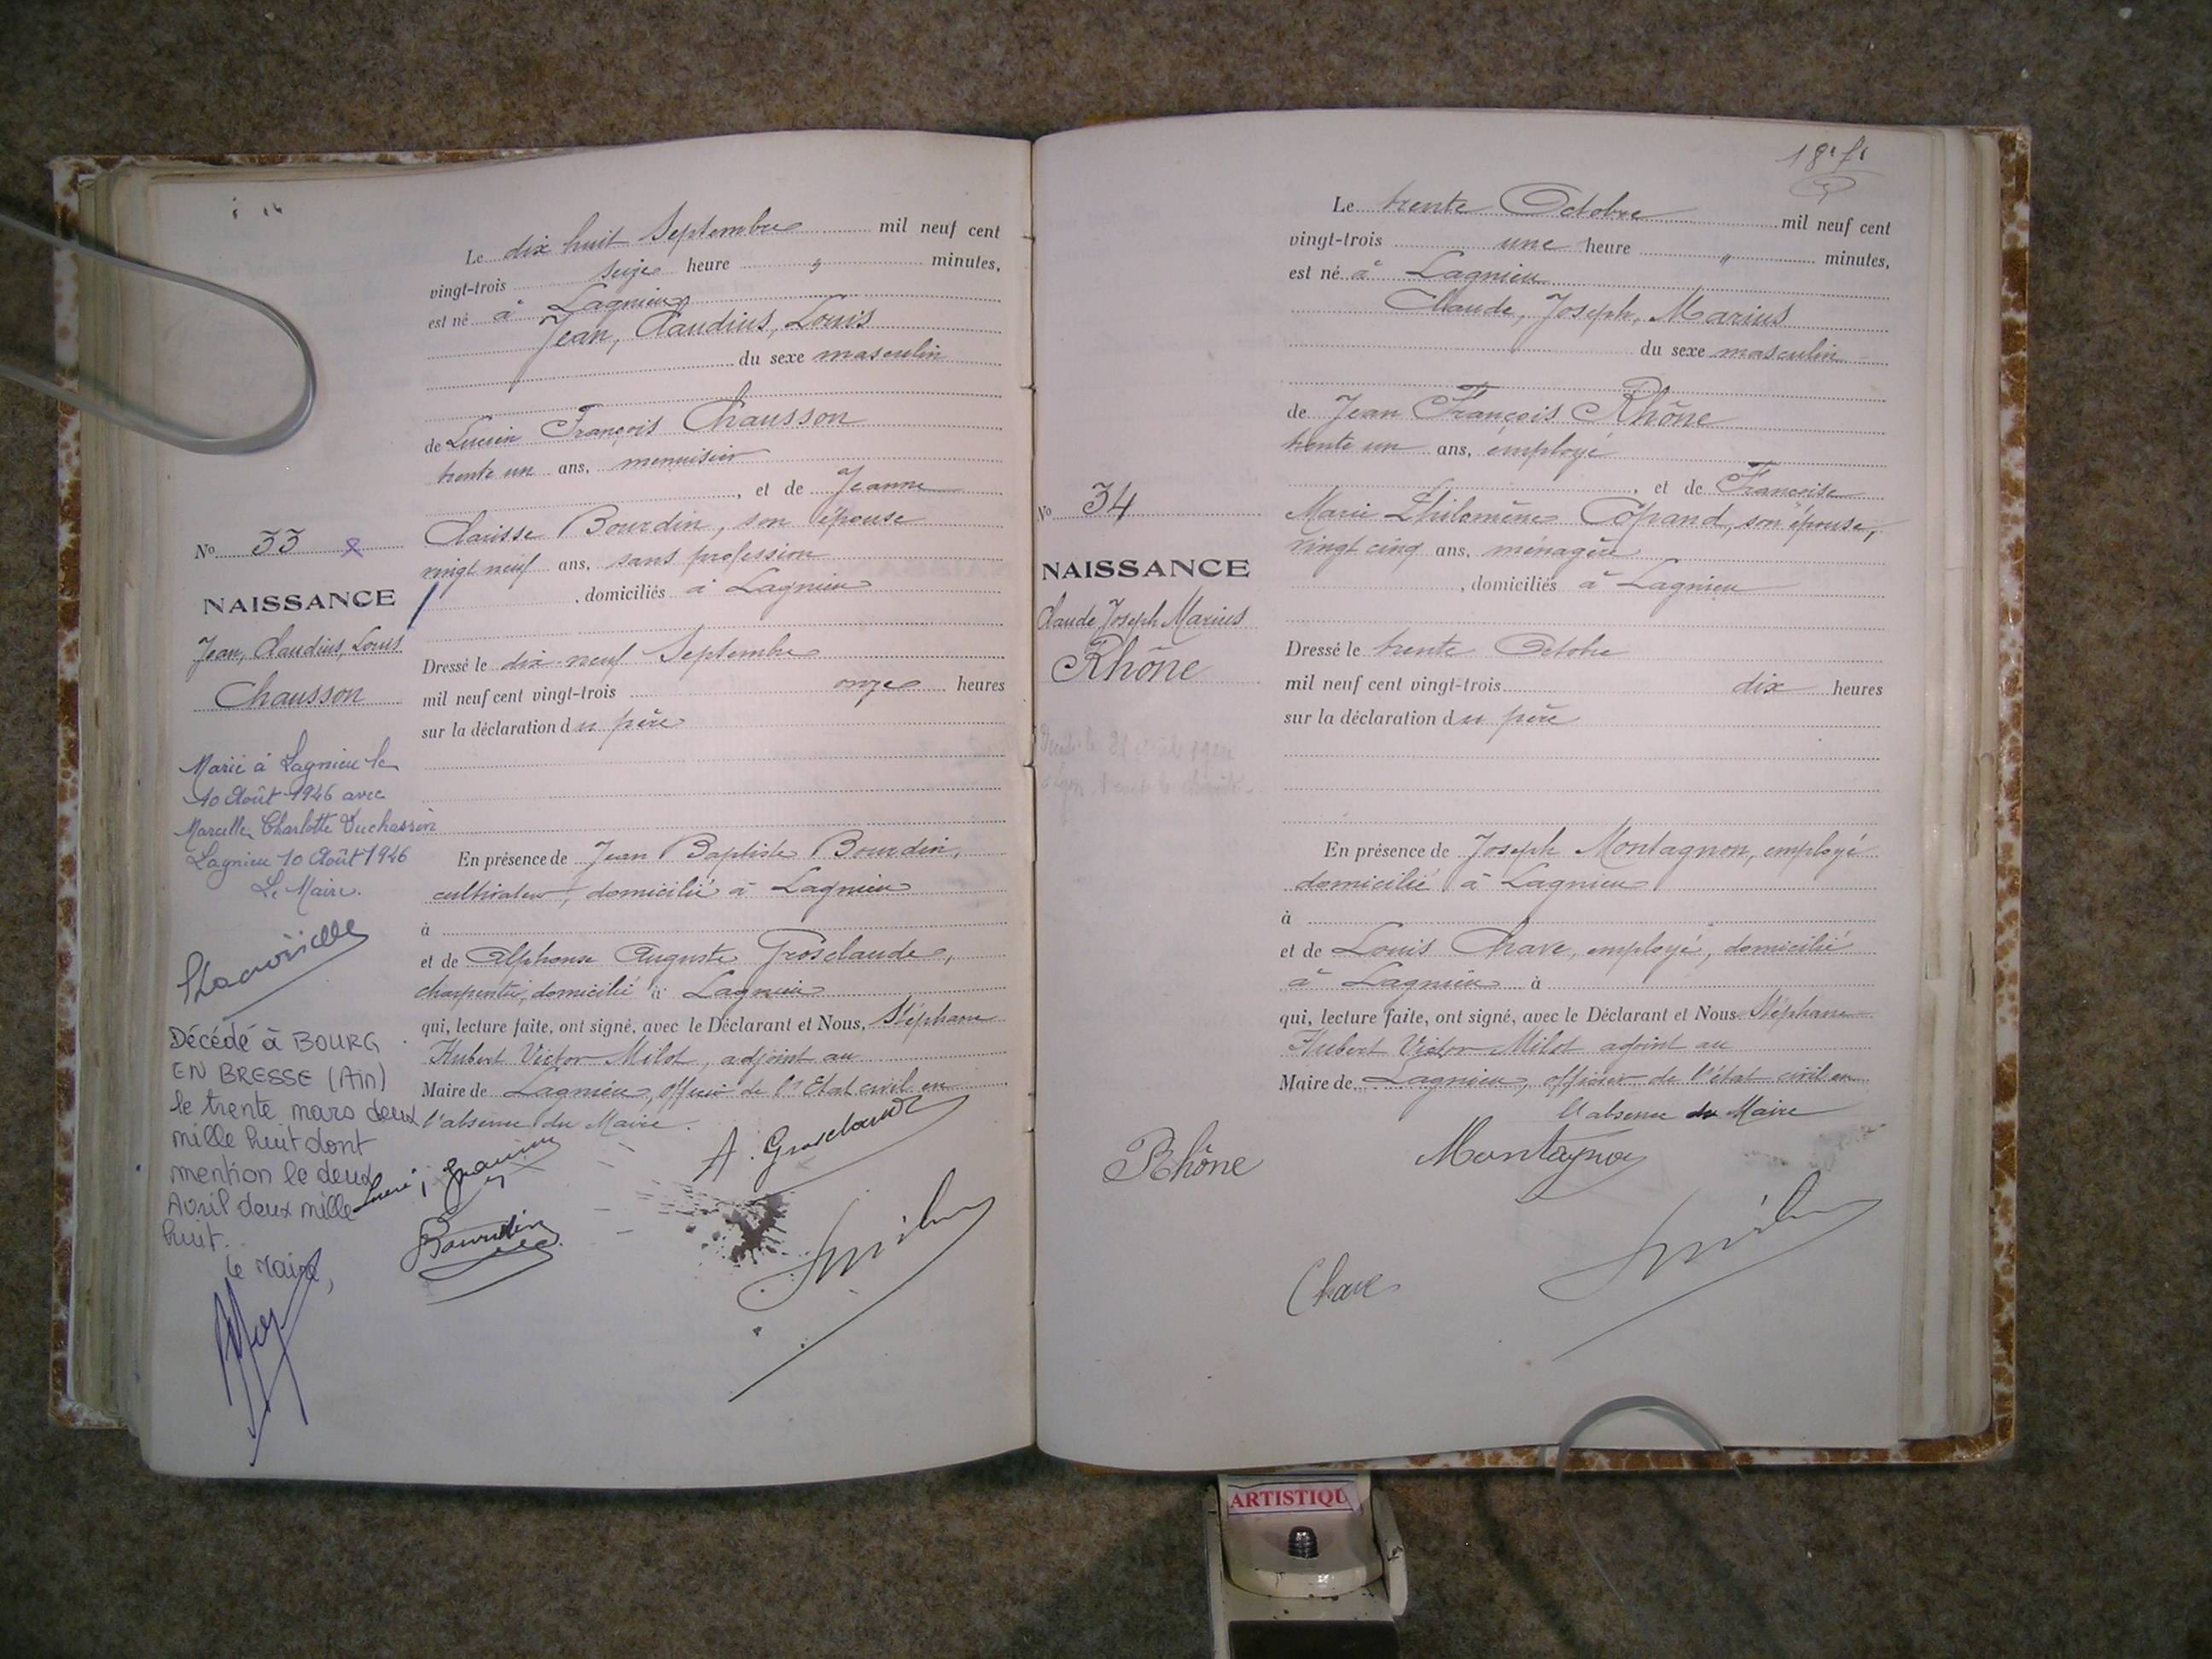 Le dix huit Septembre mil neuf cent
vingt-trois seize heure " minutes,
est né à Lagnieu
Jean, Claudius, Louis
du sexe masculin
de Lucien François Chausson
trente un ans, menuisier
, et de Jeanne
Clarisse Bourdin, son épouse
vingt neuf ans, sans profession
, domiciliés à Lagnieu
No 33
NAISSANCE
Jean, Claudius, Louis
Chausson
Dressé le dix-neuf Septembre
mil neuf cent vingt-trois onze heures
sur la déclaration du père
Marié à Lagnieu le
10 Août 1946 avec
Marcelle Charlotte Duchassin
Lagnieu 10 Août 1946
Le Maire.
En présence de Jean Baptiste Bourdin,
cultivateur, domicilié à Lagnieu
à
et de Alphonse Auguste Grosclaude,
charpentier, domicilié à Lagnieu
qui, lecture faite, ont signé, avec le Déclarant et Nous, Stéphane
Hubert Victor Milot, adjoint au
Maire de Lagnieu, officier de l'Etat civil en
l'absence du Maire.
Décédé à BOURG
EN BRESSE (Ain)
le trente mars deux
mille huit dont
mention le deux
Avril deux mille
huit.
Le Maire,
A. Grosclaude
Bourdin
18e f.
Le trente Octobre mil neuf cent
vingt-trois une heure " minutes,
est né à Lagnieu
Claude, Joseph, Marius
du sexe masculin
de Jean François Rhône
trente un ans, employé
, et de Françoise
Marie Philomène Copand, son épouse,
vingt cinq ans, ménagère
, domiciliés à Lagnieu
No 34
NAISSANCE
Claude Joseph Marius
Rhône
Dressé le trente Octobre
mil neuf cent vingt-trois dix heures
sur la déclaration du père
En présence de Joseph Montagnon, employé
domicilié à Lagnieu
à
et de Louis Chave, employé, domicilié
à Lagnieu à
qui, lecture faite, ont signé, avec le Déclarant et Nous Stéphane
Hubert Victor Milot adjoint au
Maire de Lagnieu, officier de l'état civil en
l'absence du Maire
Rhône
Montagnon
Chave
ARTISTIQU